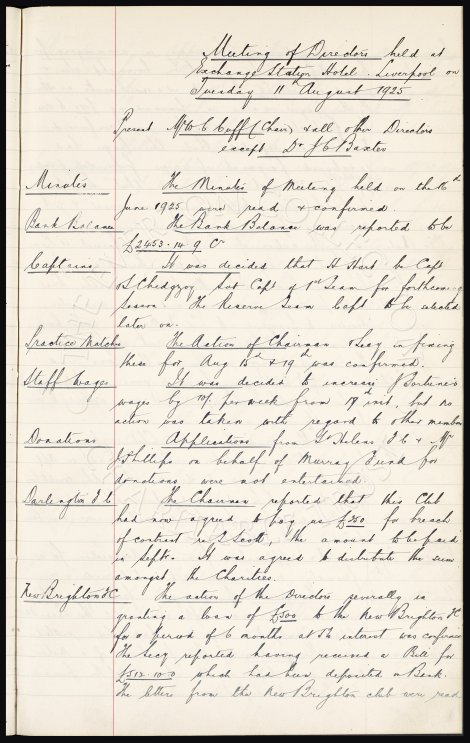 Meeting of Directors held at
Exchange Station Hotel. Liverpool on
Tuesday 11th August 1925
Present Mr W C Cuff (Chair) & all other Directors
except Dr J C Baxter
Minutes The Minutes of Meeting held on the 16th
June 1925 were read & confirmed.
Bank Balance The Bank Balance was reported to be
£2453.14.9 Cr
Captains It was decided that H Hart be Capt
S Chedgzoy Sub Capt of 1st Team for forthcoming
Season. The Reserve Team Capt to be selected
later on.
Practice Matches The Action of Chairman & Secy in fixing
these for Aug 15th & 19th was confirmed.
Staff Wages It was decided to increase
wages by 10/. per week from inst, but no
action was taken with regard to other members
Donations Applications from St Helens F C & Mr
J Phillips on behalf of Murray Fund for
donations were not entertained.
Darlington F C The Chairman reported that this Club
had now agreed to pay us for breach
of contract re Scott, the amount to be paid
in Sept. It was agreed to distribute the sum
amongst the Charities.
New Brighton FC The action of the Directors severally in
granting a loan of £500 to the New Brighton FC
for a period of 6 months at 5% interest was confirmed
The Secy reported having received a Bill for
£512.10.0 which had been deposited in Bank.
The letters from the New Brighton club were read